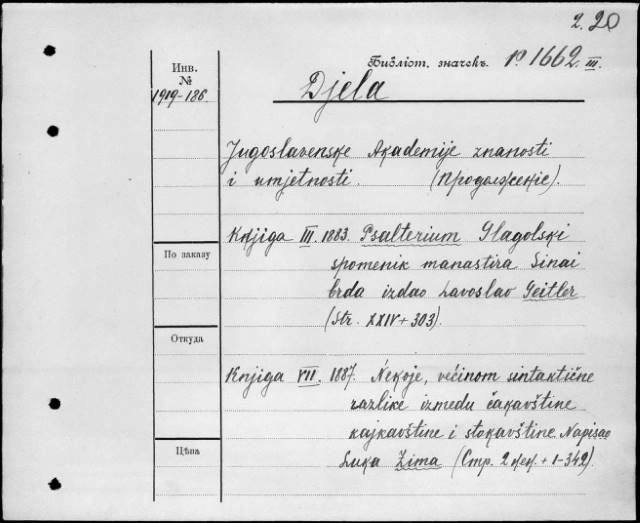 2.20
Инв.
№
1919-186.
Библіот. значекъ. Р. 1662 III.
Djela
Jugoslavenske Akademije znanosti
i umjetnosti. (Продолженіе).
Knjiga III. 1883. Psalterium Glagolski
spomenik manastira Sinai
brda izdao Lavoslav Geitler
(Str. XXIV + 303).
По заказу
Откуда
Knjiga VII. 1887. Nekoje, većinom sintaktične
razlike između čakavštine
kajkavštine i štokavštine. Napisao
Luka Zima (Стр. 2 неп. + 1-342).
Цѣна